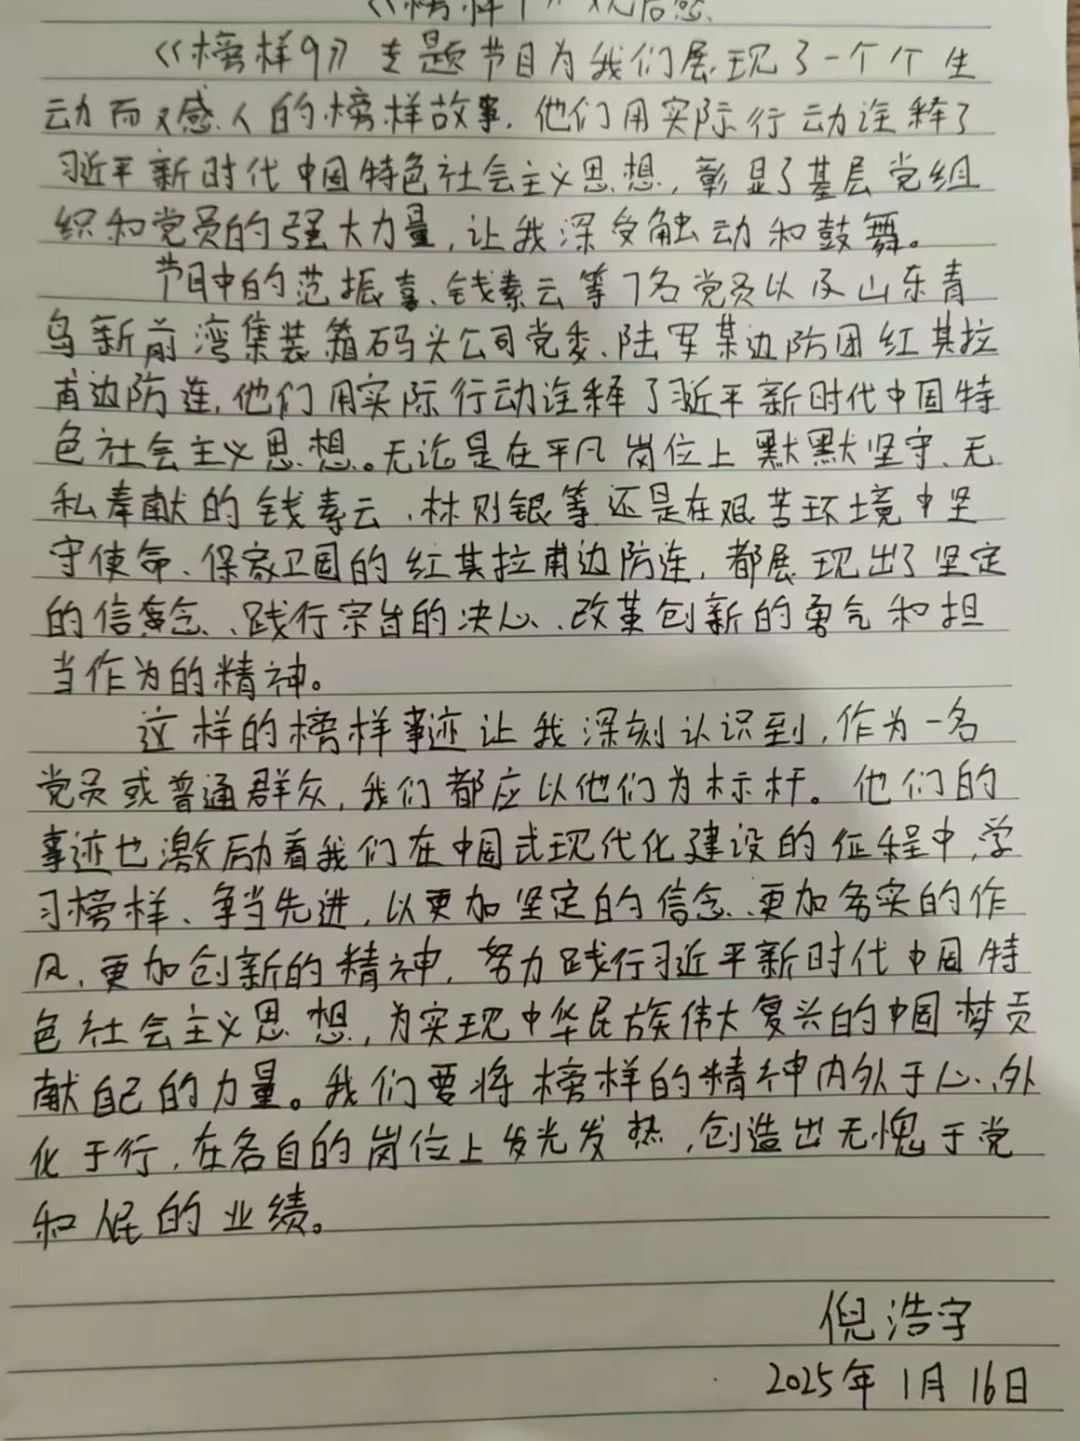 《榜样9》观后感
《榜样9》专题节目为我们展现了一个个生
动而又感人的榜样故事,他们用实际行动诠释了
习近平新时代中国特色社会主义思想,彰显了基层党组
织和党员的强大力量,让我深受触动和鼓舞。
节目中的范振喜、钱素云等7名党员以及山东青
岛新前湾集装箱码头公司党委、陆军某边防团红其拉
甫边防连,他们用实际行动诠释了习近平新时代中国特
色社会主义思想。无论是在平凡岗位上默默坚守、无
私奉献的钱素云、林则银等还是在艰苦环境中坚
守使命、保家卫国的红其拉甫边防连,都展现出了坚定
的信念、践行宗旨的决心、改革创新的勇气和担
当作为的精神。
这样的榜样事迹让我深刻认识到,作为一名
党员或普通群众,我们都应以他们为标杆。他们的
事迹也激励着我们在中国式现代化建设的征程中,学
习榜样、争当先进,以更加坚定的信念、更加务实的作
风、更加创新的精神,努力践行习近平新时代中国特
色社会主义思想,为实现中华民族伟大复兴的中国梦贡
献自己的力量。我们要将榜样的精神内外于心、外
化于行,在各自的岗位上发光发热,创造出无愧于党
和人民的业绩。
倪浩宇
2025年1月16日